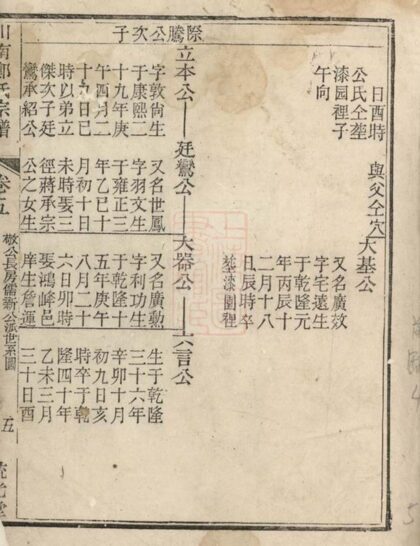 日酉時
公氏仝塟
漆园裡子
午向
與父仝穴
大基公
又名廣效
字宅遠生
于乾隆元
年丙辰十
二月十八
丑辰時卒
塟漆園裡
際騰公次子
立本公
字敦尙生
于康熙二
十九年庚
午四月二
十九日巳
時以弟立
傑次子廷
鸞承紹公
廷鸞公
又名世鳳
字羽文生
于雍正三
年乙巳十
月初十日
未時娶三
徑蔣承宗
公之女生
大器公
又名廣勲
字利功生
于乾隆十
五年庚午
八月二十
六日夘時
娶鴻峰邑
庠生詹運
六言公
生于乾隆
三十六年
辛卯十月
初九日亥
時卒于乾
隆四十年
乙未三月
三十日酉
川南鄭氏宗譜
卷五
敬公長房儒新公派世系圖
五